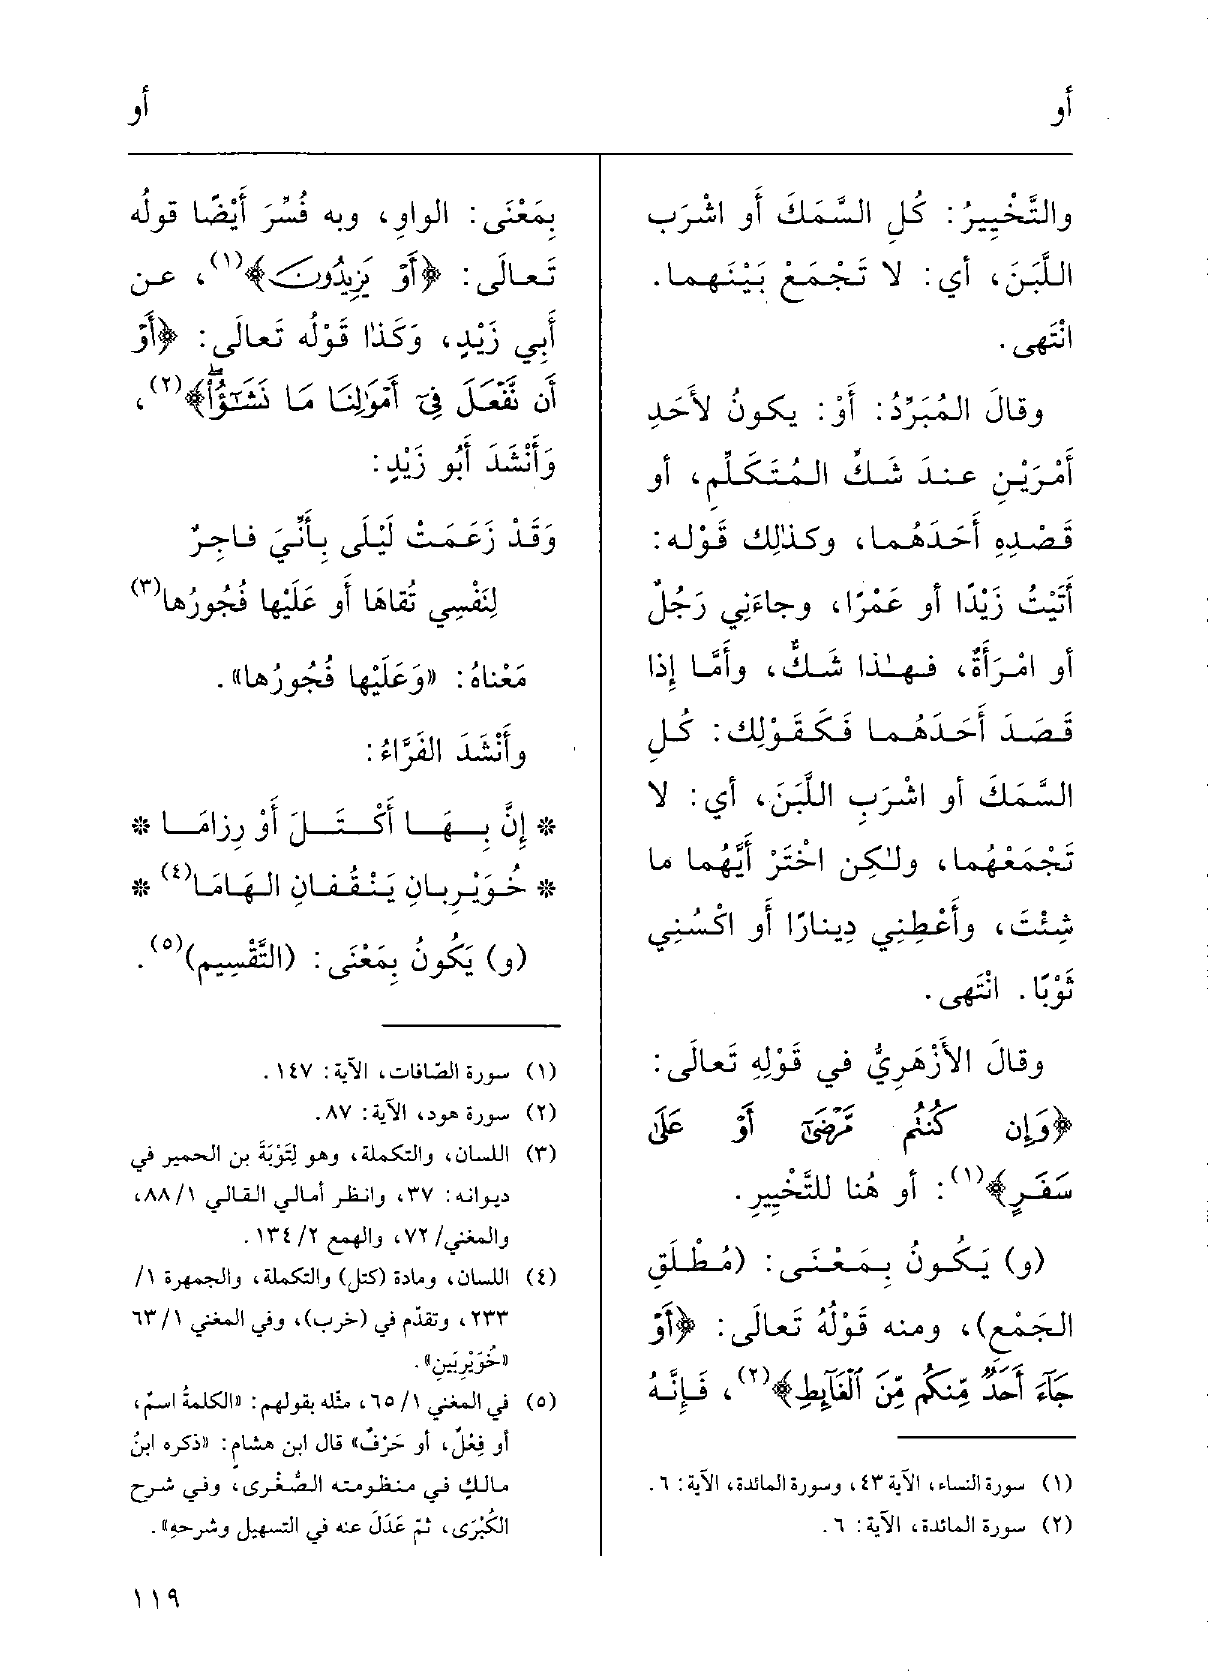 أو
أو
والتَّخْيِيرُ: كُلِ السَّمَكَ أو اشْرَب
اللَّبَنَ، أي: لا تَجْمَعْ بَيْنَهما.
انْتَهى.
وقالَ المُبَرِّدُ: أَوْ: يكونُ لأَحَدِ
أَمْرَيْنِ عندَ شَكِّ المُتَكَلِّمِ، أو
قَصْدِهِ أَحَدَهُما، وكذٰلِك قَوْله:
أَتَيْتُ زَيْدًا أو عَمْرًا، وجاءَنِي رَجُلٌ
أو امْرَأَةٌ، فهٰذا شَكٌّ، وأَمَّا إِذا
قَصَدَ أَحَدَهُما فَكَقَوْلِك: كُلِ
السَّمَكَ أو اشْرَبِ اللَّبَنَ، أي: لا
تَجْمَعْهُما، ولٰكِن اخْتَرْ أَيَّهُما ما
شِئْتَ، وأَعْطِنِي دِينارًا أو اكْسُنِي
ثَوْبًا. انْتَهى.
وقالَ الأَزْهَرِيُّ في قَوْلِهِ تَعالَى:
﴿وَإِن كُنتُم مَّرْضَىٰٓ أَوْ عَلَىٰ
سَفَرٍ﴾(١): أو هُنا للتَّخْيِيرِ.
(و) يَكُونُ بِمَعْنَى: (مُطْلَقِ
الجَمْعِ)، ومنه قَوْلُهُ تَعالَى: ﴿أَوْ
جَآءَ أَحَدٌ مِّنكُم مِّنَ ٱلْغَآئِطِ﴾(٢)، فَإِنَّهُ
(١) سورة النساء، الآية ٤٣، وسورة المائدة، الآية: ٦.
(٢) سورة المائدة، الآية: ٦.
بِمَعْنَى: الواوِ، وبه فُسِّرَ أَيْضًا قولُه
تَعالَى: ﴿أَوْ يَزِيدُونَ﴾(١)، عن
أَبِي زَيْدٍ، وَكَذا قَوْلُه تَعالَى: ﴿أَوْ
أَن نَّفْعَلَ فِىٓ أَمْوَٰلِنَا مَا نَشَـٰٓؤُا۟ۖ﴾(٢)،
وَأَنْشَدَ أَبُو زَيْدٍ:
وَقَدْ زَعَمَتْ لَيْلَى بِأَنِّيَ فاجِرٌ
لِنَفْسِي تُقاهَا أو عَلَيْها فُجُورُها(٣)
مَعْناهُ: «وَعَلَيْها فُجُورُها».
وأَنْشَدَ الفَرَّاءُ:
* إِنَّ بِـهَـا أَكْـتَـلَ أَوْ رِزامَـا *
* خُوَيْرِبانِ يَنْقُفانِ الهَامَا(٤) *
(و) يَكُونُ بِمَعْنَى: (التَّقْسِيم)(٥).
(١) سورة الصّافات، الآية: ١٤٧.
(٢) سورة هود، الآية: ٨٧.
(٣) اللسان، والتكملة، وهو لِتَوْبَةَ بن الحمير في
ديوانه: ٣٧، وانظر أمالي القالي ١/ ٨٨،
والمغني/ ٧٢، والهمع ٢/ ١٣٤.
(٤) اللسان، ومادة (كتل) والتكملة، والجمهرة ١/
٢٣٣، وتقدّم في (خرب)، وفي المغني ١/ ٦٣
«خُوَيْرِبَينِ».
(٥) في المغني ١/ ٦٥، مثّله بقولهم: «الكلمةُ اسمٌ،
أو فِعْلٌ، أو حَرْفٌ» قال ابن هشامٍ: «ذكره ابنُ
مالكٍ في منظومته الصُّغْرى، وفي شرح
الكُبْرَى، ثمّ عَدَلَ عنه في التسهيل وشرحهِ».
١١٩